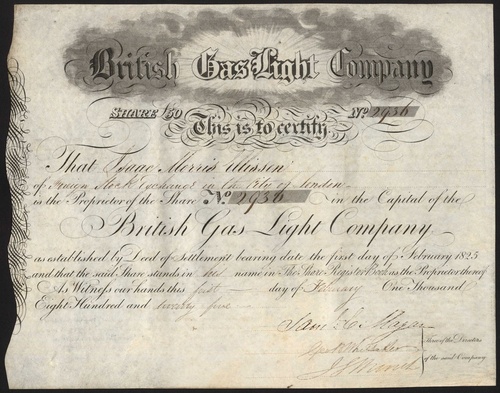 British Gas Light Company
SHARE £50 No 2936
This is to certify
That Isaac Morris
of Stock Exchange in the City of London
is the Proprietor of the Share No 2936 in the Capital of the
British Gas Light Company
as established by Deed of Settlement bearing date the first day of February 1825
and that the said Share stands in his name in The Share Register Book as the Proprietor thereof
As Witness our hands this first day of February One Thousand
Eight Hundred and twenty five
Three of the Directors
of the said Company